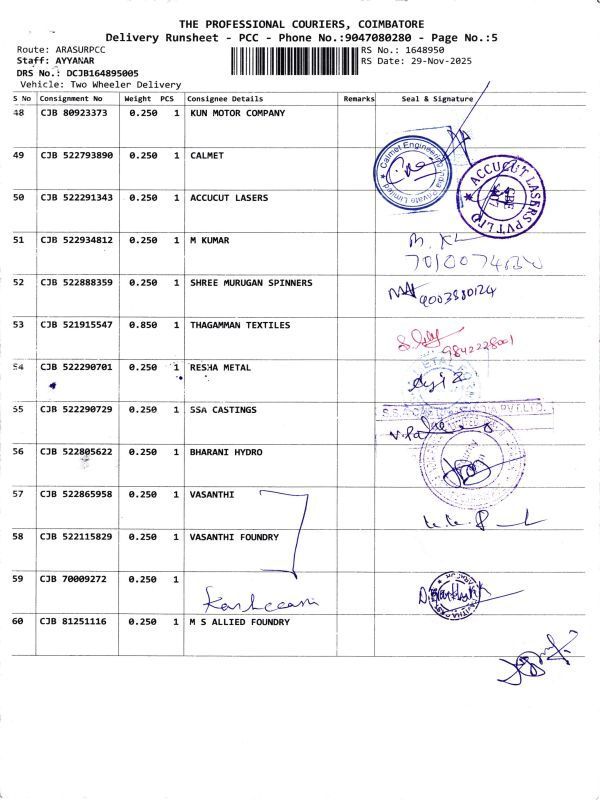 THE PROFESSIONAL COURIERS, COIMBATORE
Delivery Runsheet - PCC - Phone No.:9047080280 - Page No.:5
Route: ARASURPCC RS No.: 1648950
Staff: AYYANAR RS Date: 29-Nov-2025
DRS No.: DCJB164895005
Vehicle: Two Wheeler Delivery
S No Consignment No Weight PCS Consignee Details Remarks Seal & Signature
48 CJB 80923373 0.250 1 KUN MOTOR COMPANY
49 CJB 522793890 0.250 1 CALMET
Calmet Engineering India Private Limited
50 CJB 522291343 0.250 1 ACCUCUT LASERS
ACCUCUT LASERS PVT LTD
51 CJB 522934812 0.250 1 M KUMAR
52 CJB 522888359 0.250 1 SHREE MURUGAN SPINNERS
53 CJB 521915547 0.850 1 THAGAMMAN TEXTILES
9842228001
54 CJB 522290701 0.250 1 RESHA METAL
55 CJB 522290729 0.250 1 SSA CASTINGS
56 CJB 522805622 0.250 1 BHARANI HYDRO
57 CJB 522865958 0.250 1 VASANTHI
58 CJB 522115829 0.250 1 VASANTHI FOUNDRY
59 CJB 70009272 0.250 1
60 CJB 81251116 0.250 1 M S ALLIED FOUNDRY